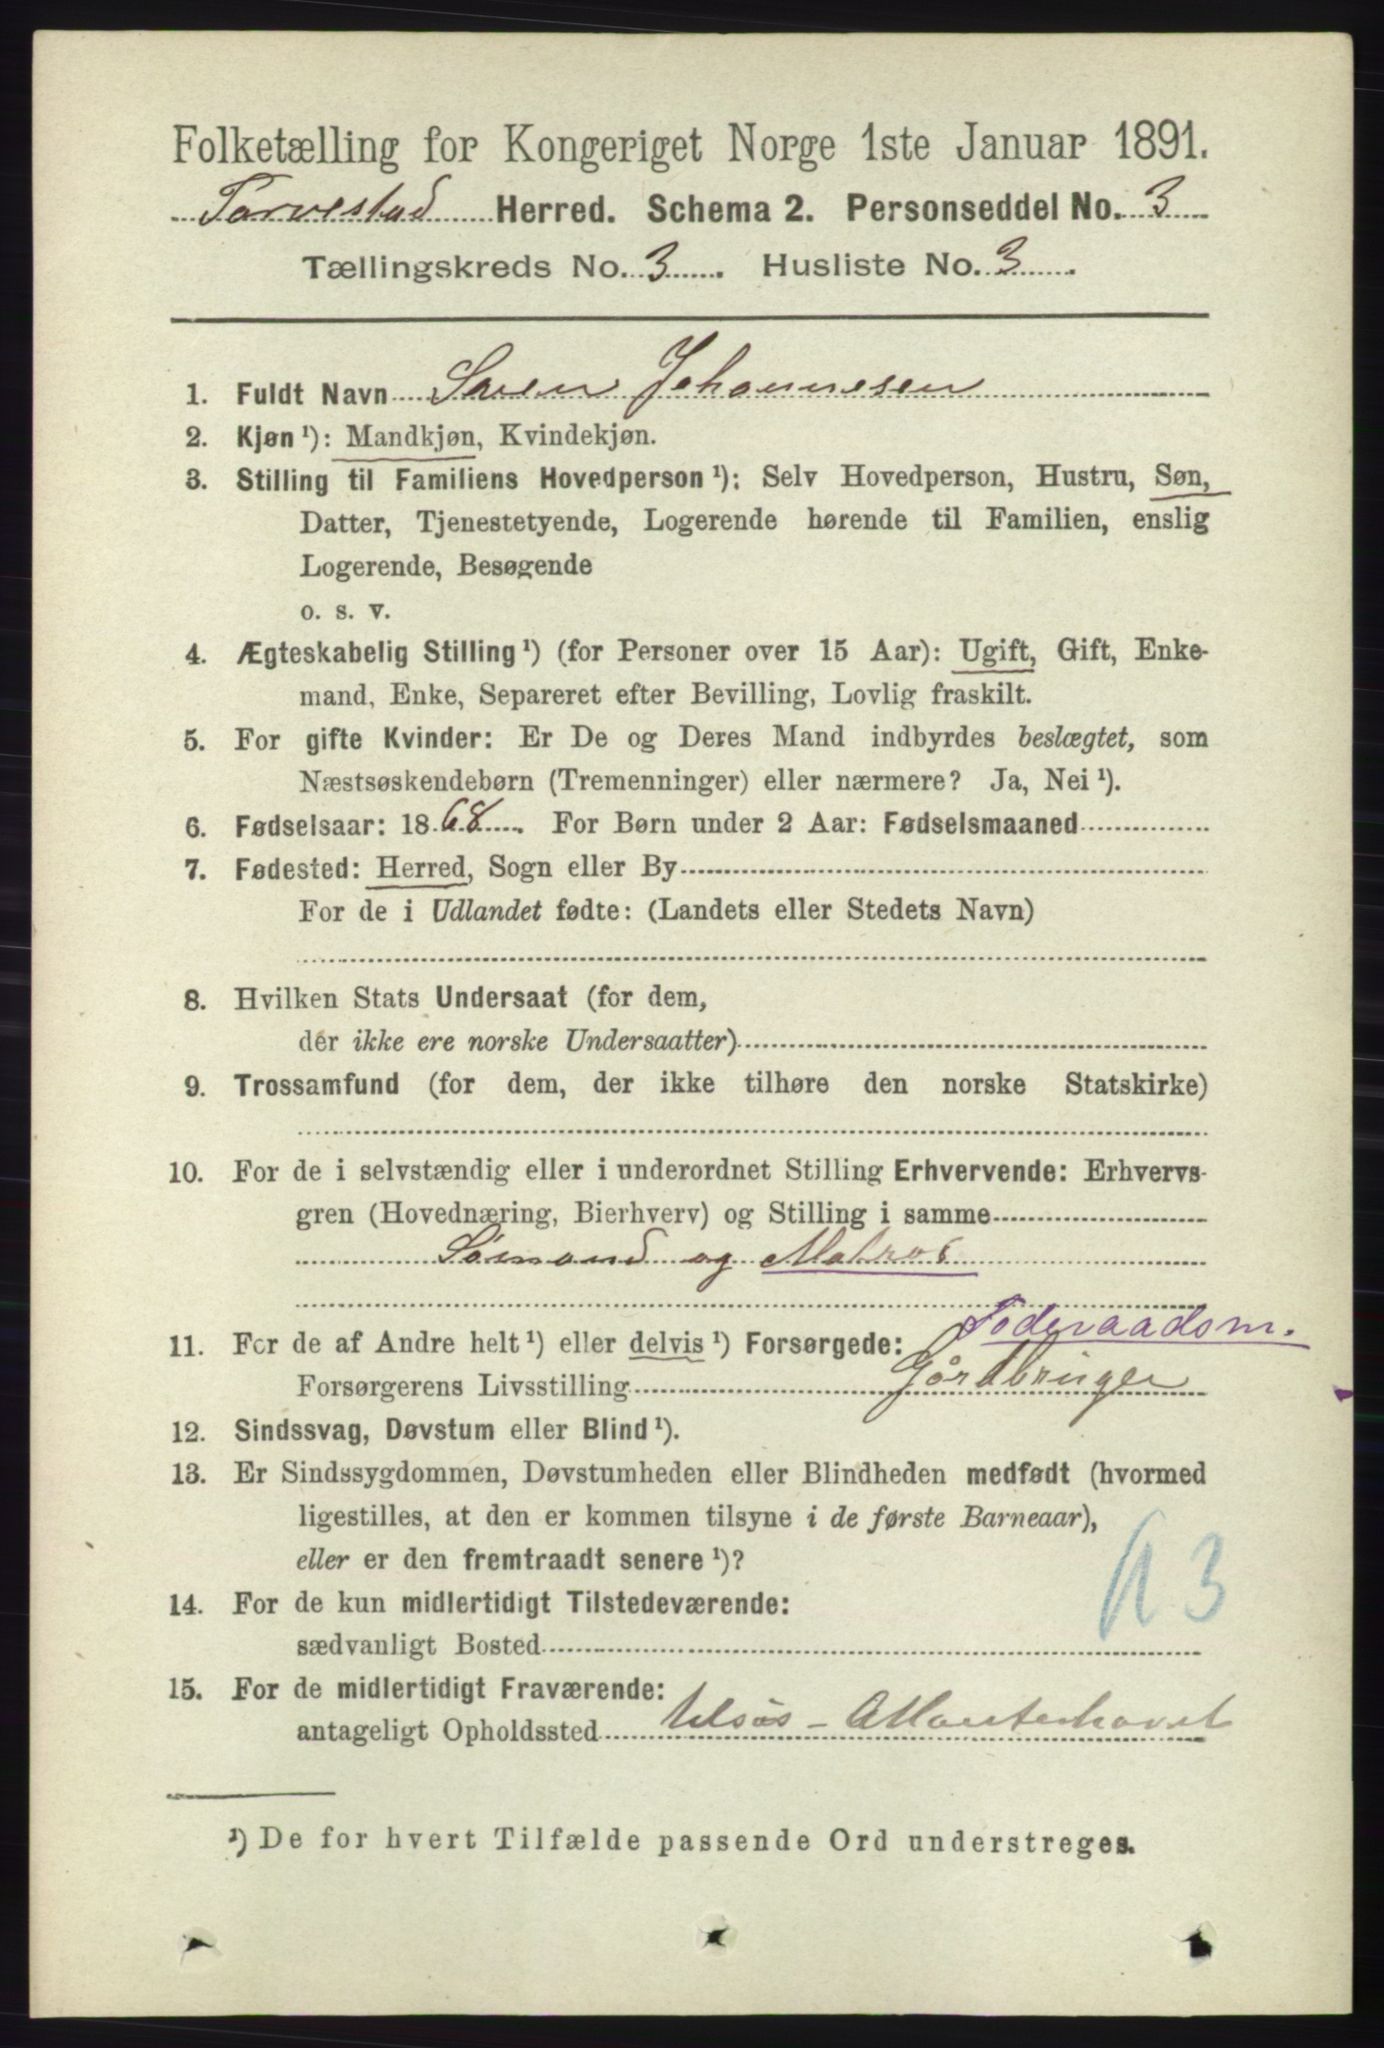 Folketælling for Kongeriget Norge 1ste Januar 1891.
Torvestad Herred. Schema 2. Personseddel No. 3
Tællingskreds No. 3 Husliste No. 3
1. Fuldt Navn Søren Johannesen
2. Kjøn ¹): Mandkjøn, Kvindekjøn.
3. Stilling til Familiens Hovedperson ¹): Selv Hovedperson, Hustru, Søn,
Datter, Tjenestetyende, Logerende hørende til Familien, enslig
Logerende, Besøgende
o. s. v.
4. Ægteskabelig Stilling ¹) (for Personer over 15 Aar): Ugift, Gift, Enke-
mand, Enke, Separeret efter Bevilling, Lovlig fraskilt.
5. For gifte Kvinder: Er De og Deres Mand indbyrdes beslægtet, som
Næstsøskendebørn (Tremenninger) eller nærmere? Ja, Nei ¹).
6. Fødselsaar: 1868. For Børn under 2 Aar: Fødselsmaaned
7. Fødested: Herred, Sogn eller By
For de i Udlandet fødte: (Landets eller Stedets Navn)
8. Hvilken Stats Undersaat (for dem,
der ikke ere norske Undersaatter)
9. Trossamfund (for dem, der ikke tilhøre den norske Statskirke)
10. For de i selvstændig eller i underordnet Stilling Erhvervende: Erhvervs-
gren (Hovednæring, Bierhverv) og Stilling i samme
Sømand og Matros
Føderaadsm.
11. For de af Andre helt ¹) eller delvis ¹) Forsørgede:
Forsørgerens Livsstilling Gårdbruger
12. Sindssvag, Døvstum eller Blind ¹).
13. Er Sindssygdommen, Døvstumheden eller Blindheden medfødt (hvormed
ligestilles, at den er kommen tilsyne i de første Barneaar),
eller er den fremtraadt senere ¹)?
14. For de kun midlertidigt Tilstedeværende:
sædvanligt Bosted
15. For de midlertidigt Fraværende:
antageligt Opholdssted Atlanterhavet
¹) De for hvert Tilfælde passende Ord understreges.